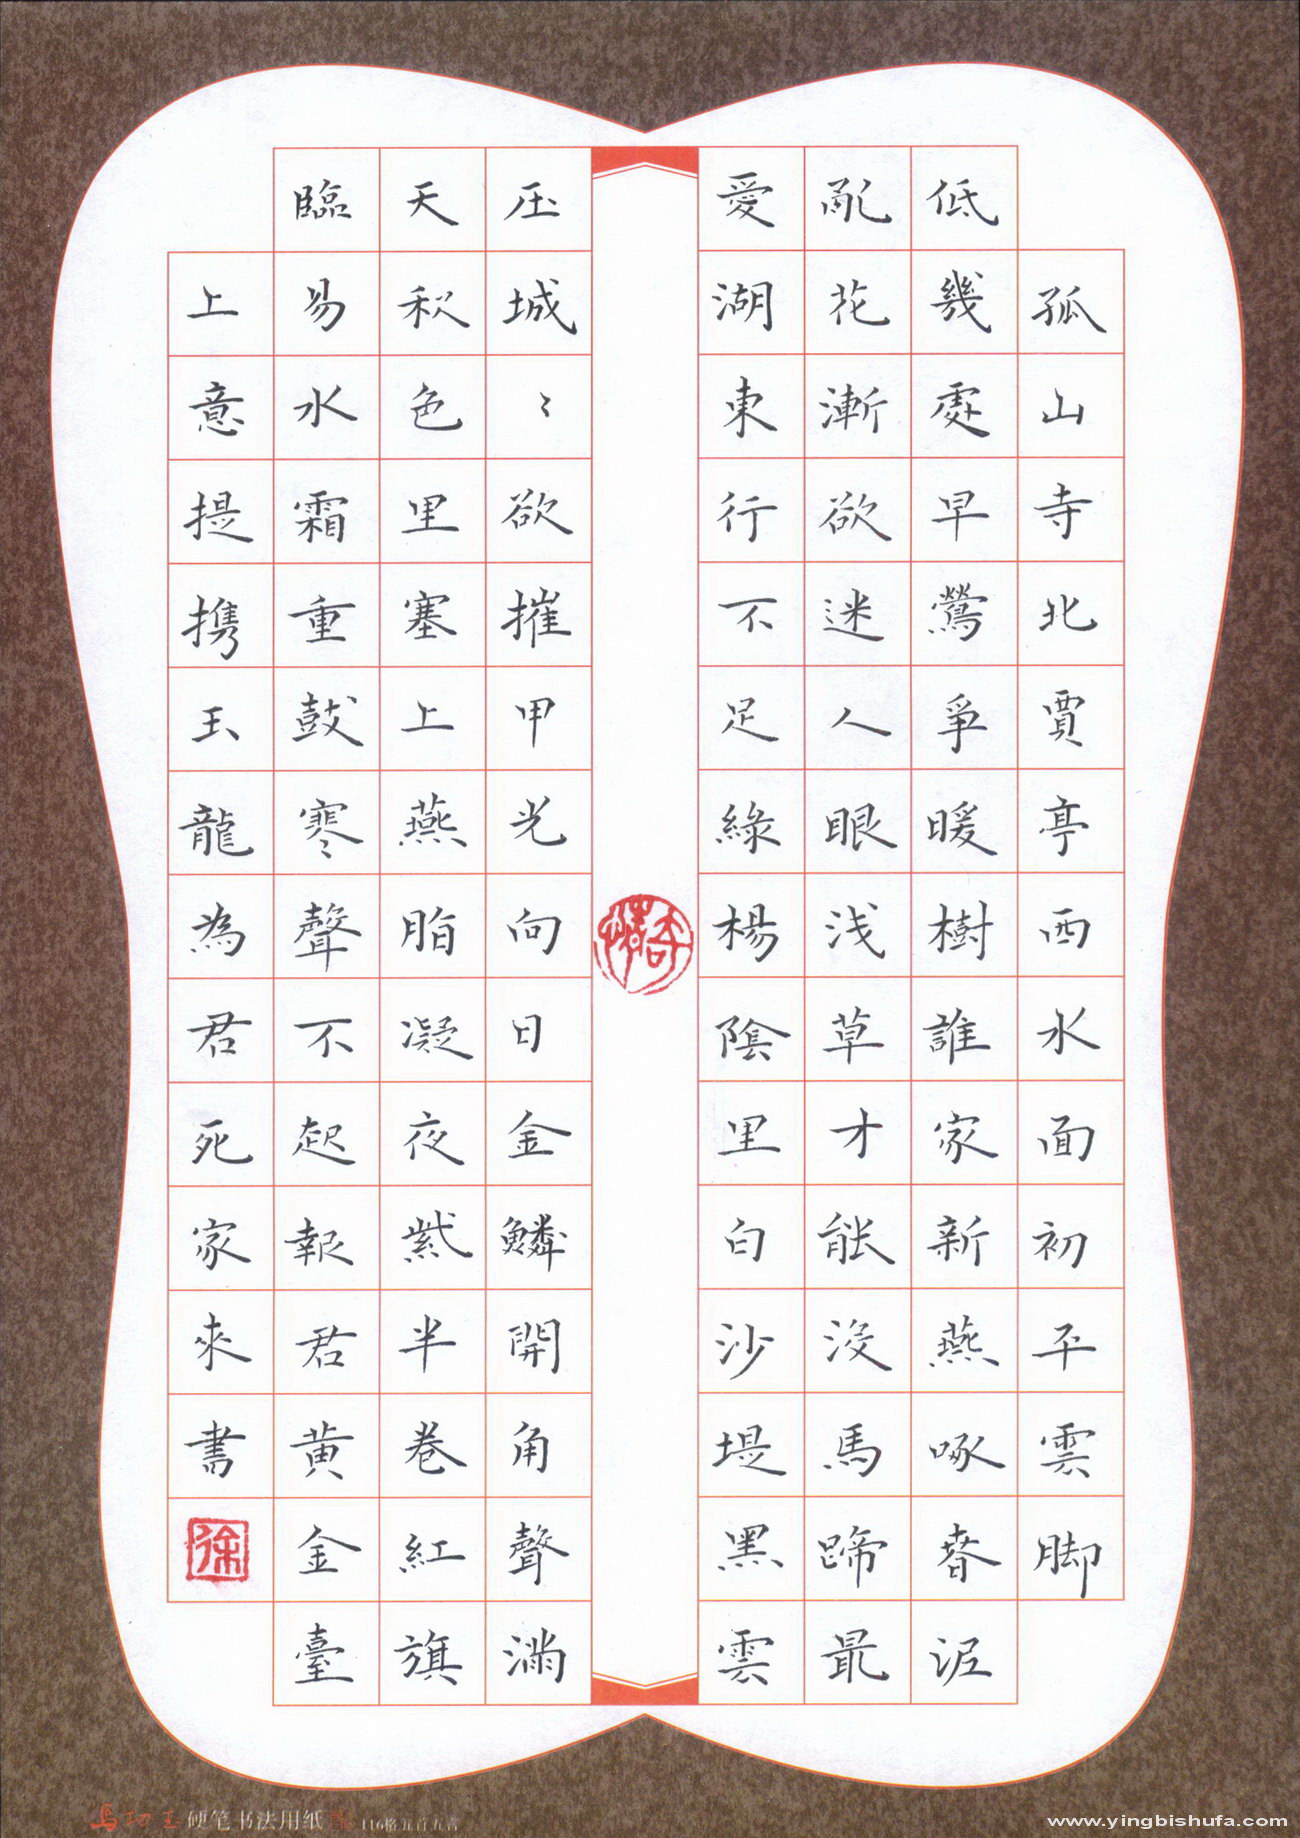 孤山寺北賈亭西水面初平雲脚
低幾處早鶯爭暖樹誰家新燕啄春泥
亂花漸欲迷人眼浅草才能沒馬蹄最
愛湖東行不足綠楊陰里白沙堤黑雲
压城〻欲摧甲光向日金鱗開角聲滿
天秋色里塞上燕脂凝夜紫半卷紅旗
臨易水霜重鼓寒聲不起報君黄金臺
上意提携玉龍為君死家來書
徐
硬笔书法用纸
www.yingbishufa.com